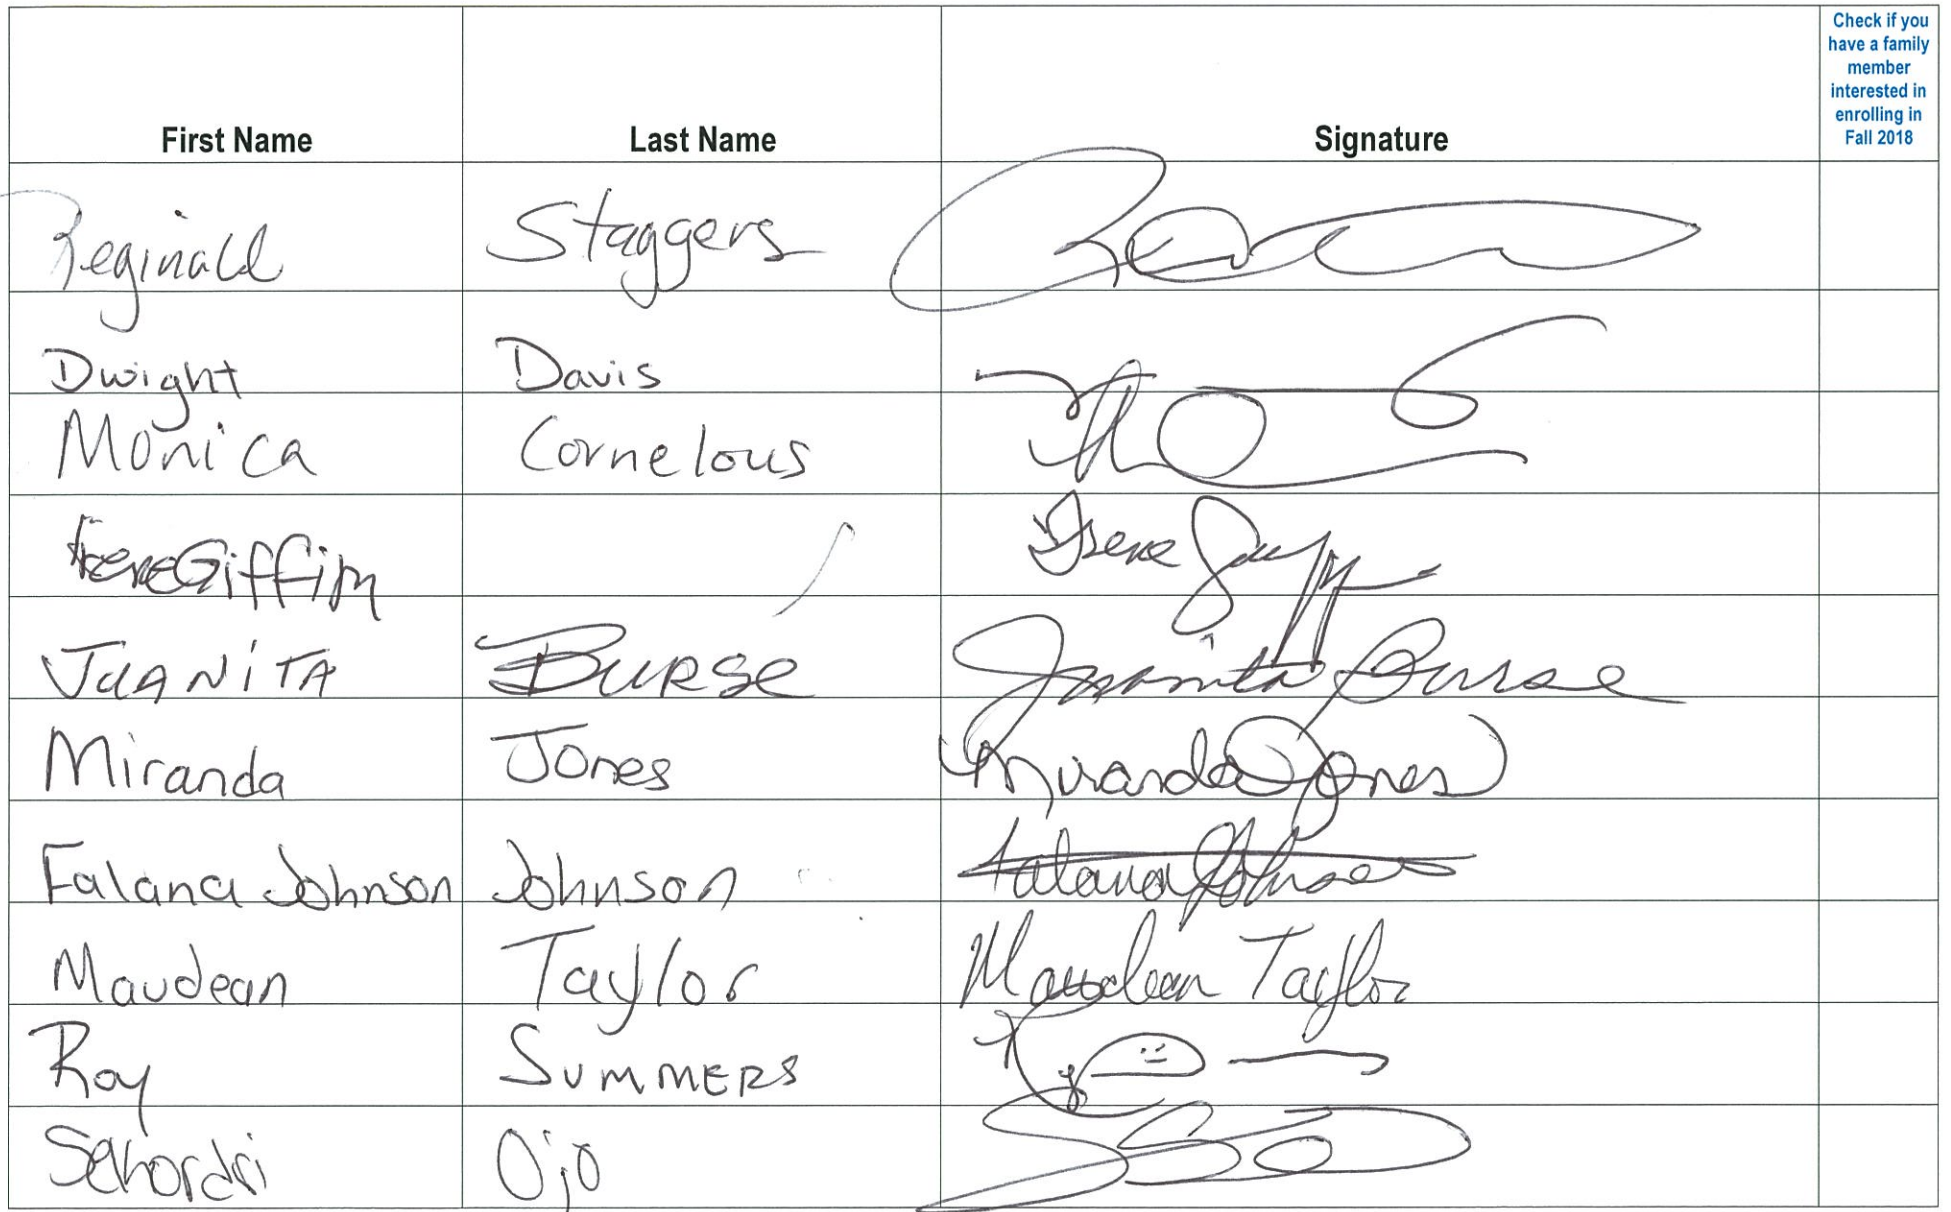 First Name Last Name Signature Check if you
have a family
member
interested in
enrolling in
Fall 2018
Reginald Staggers
Dwight Davis
Monica Cornelous
Irene Giffin Irene
JUANITA BURSE Juanita Burse
Miranda Jones Miranda Jones
Falana Johnson Johnson Falana Johnson
Maudean Taylor Maudean Taylor
Roy SUMMERS
Sehordri Ojo